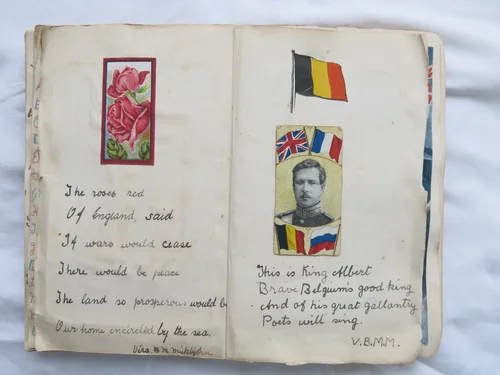 The roses red
Of England, said
If wars would cease
There would be peace
The land so prosperous would be
Our home incircled by the sea.
Vera. B. M.
This is King Albert
Brave Belgium's good king
And of his great gallantry
Poets will sing.
V.B.M.M.